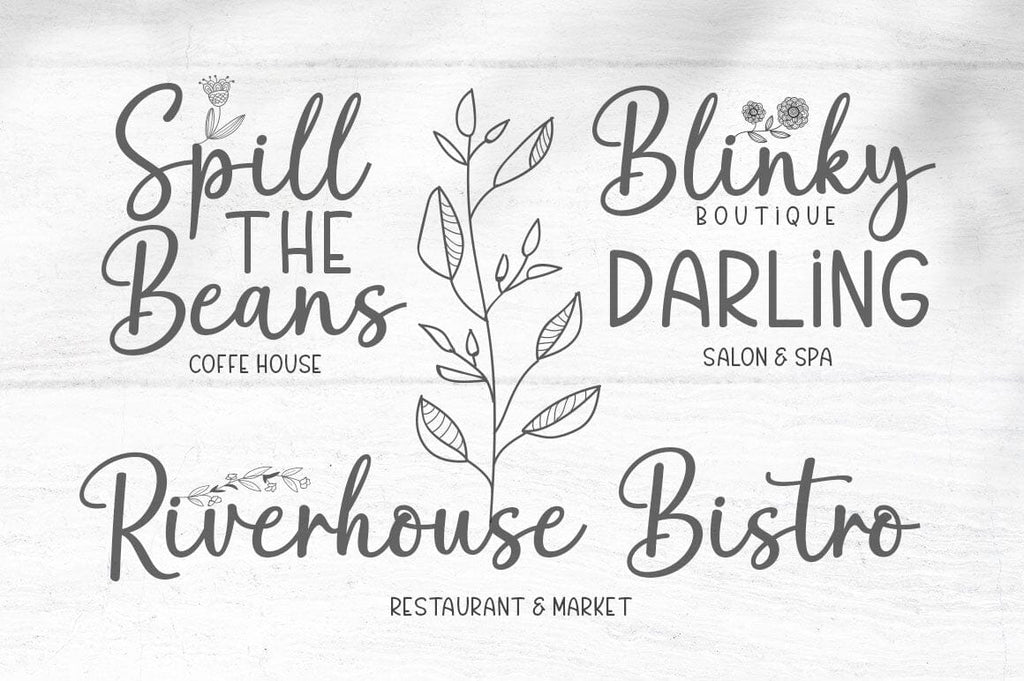 Spill
THE
Beans
COFFE HOUSE
Blinky
BOUTIQUE
DARLiNG
SALON & SPA
Riverhouse Bistro
RESTAURANT & MARKET